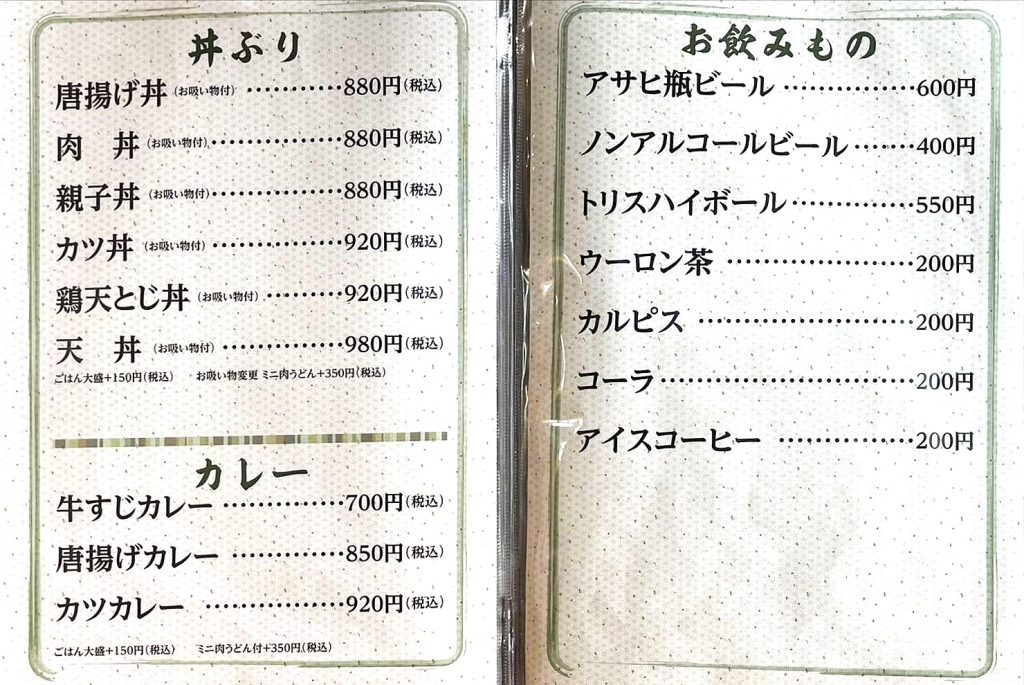 丼ぶり
唐揚げ丼(お吸い物付)…………880円(税込)
肉　丼(お吸い物付)…………880円(税込)
親子丼(お吸い物付)…………880円(税込)
カツ丼(お吸い物付)…………920円(税込)
鶏天とじ丼(お吸い物付)…………920円(税込)
天　丼(お吸い物付)…………980円(税込)
ごはん大盛+150円(税込)　お吸い物変更 ミニ肉うどん+350円(税込)
カレー
牛すじカレー…………700円(税込)
唐揚げカレー…………850円(税込)
カツカレー…………920円(税込)
ごはん大盛+150円(税込)　ミニ肉うどん付+350円(税込)
お飲みもの
アサヒ瓶ビール…………600円
ノンアルコールビール…………400円
トリスハイボール…………550円
ウーロン茶…………200円
カルピス…………200円
コーラ…………200円
アイスコーヒー…………200円